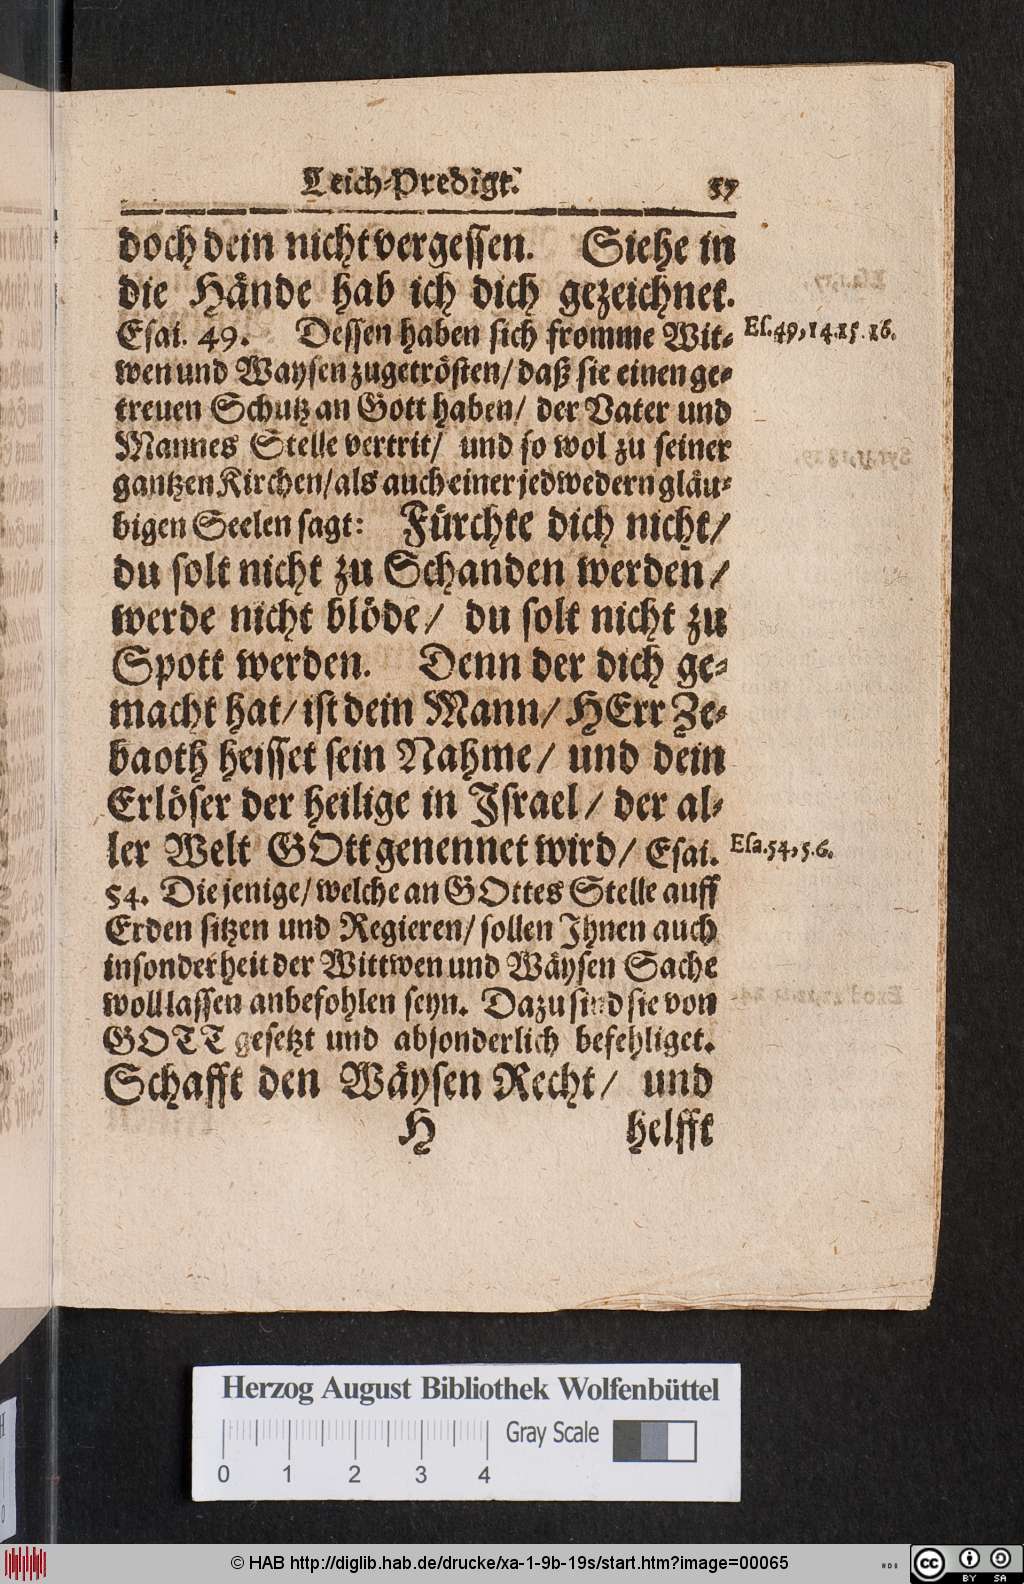 Leich-Predigt. 57
doch dein nicht vergessen. Siehe in
die Hände hab ich dich gezeichnet.
Esai. 49. Dessen haben sich fromme Wit-
Es. 49, 14. 15. 16.
wen und Waysen zugetrösten/ daß sie einen ge-
treuen Schutz an Gott haben/ der Vater und
Mannes Stelle vertrit/ und so wol zu seiner
gantzen Kirchen/ als auch einer jedwedern gläu-
bigen Seelen sagt: Fürchte dich nicht/
du solt nicht zu Schanden werden/
werde nicht blöde/ du solt nicht zu
Spott werden. Denn der dich ge-
macht hat/ ist dein Mann/ HErr Ze-
baoth heisset sein Nahme/ und dein
Erlöser der heilige in Israel/ der al-
ler Welt GOtt genennet wird/ Esai.
Esa. 54, 5. 6.
54. Die jenige/ welche an GOttes Stelle auff
Erden sitzen und Regieren/ sollen Ihnen auch
insonderheit der Wittwen und Wäysen Sache
woll lassen anbefohlen seyn. Dazu sind sie von
GOTT gesetzt und absonderlich befehliget.
Schafft den Wäysen Recht/ und
H helfft
Herzog August Bibliothek Wolfenbüttel
Gray Scale
0 1 2 3 4
© HAB http://diglib.hab.de/drucke/xa-1-9b-19s/start.htm?image=00065
cc BY SA